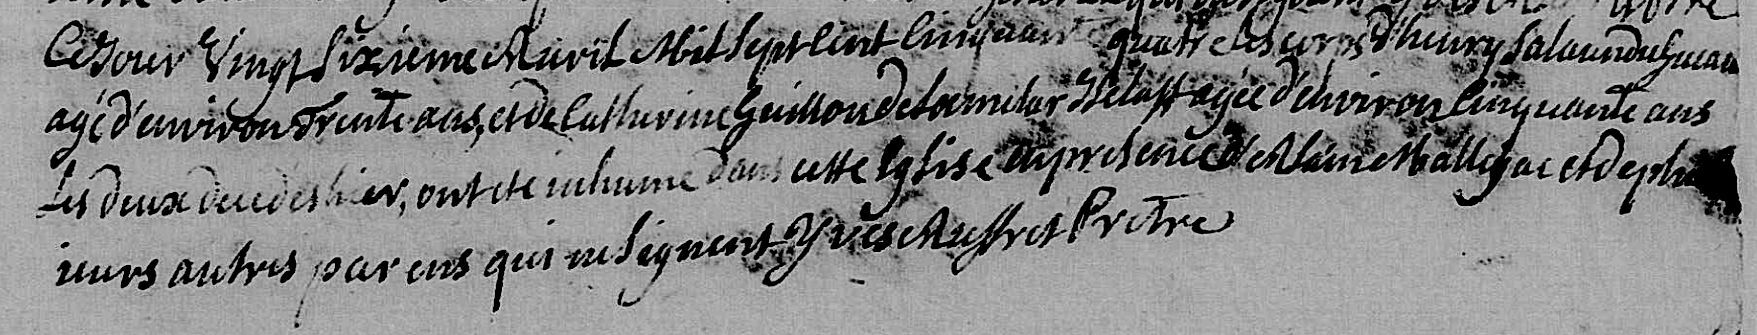 Ce Jour Vingt Sixieme Auvril Mil Sept Cent Cinquante quatre les corps d'henry Salaun du
agé d'environ Trente ans, et de Catherine Guillou de agée d'environ Cinquante ans
les deux decedes hier, ont eté inhumé dans cette Eglise en presence d'Alain Mallegac et de plu
ieurs autres parens qui ne signent Yves Auffret Pretre